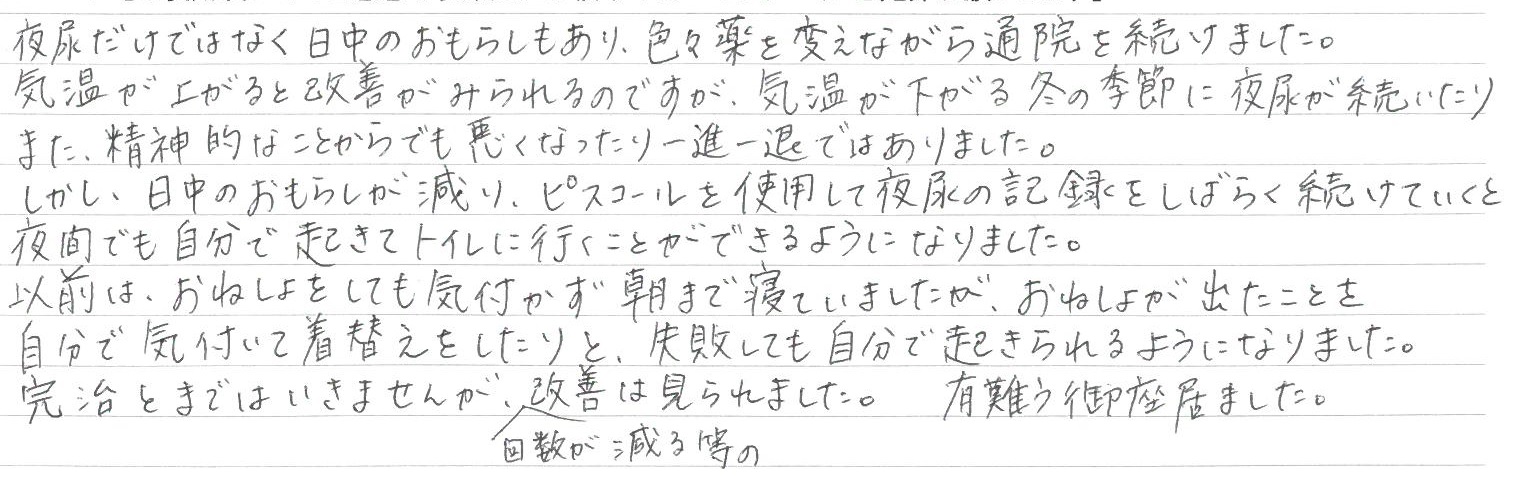 夜尿だけではなく日中のおもらしもあり、色々薬を変えながら通院を続けました。
気温が上がると改善がみられるのですが、気温が下がる冬の季節に夜尿が続いたり
また、精神的なことからでも悪くなったり一進一退ではありました。
しかし、日中のおもらしが減り、ピスコールを使用して夜尿の記録をしばらく続けていくと
夜間でも自分で起きてトイレに行くことができるようになりました。
以前は、おねしょをしても気付かず朝まで寝ていましたが、おねしょが出たことを
自分で気付いて着替えをしたりと、失敗しても自分で起きられるようになりました。
完治とまではいきませんが、改善は見られました。 有難う御座居ました。
回数が減る等の